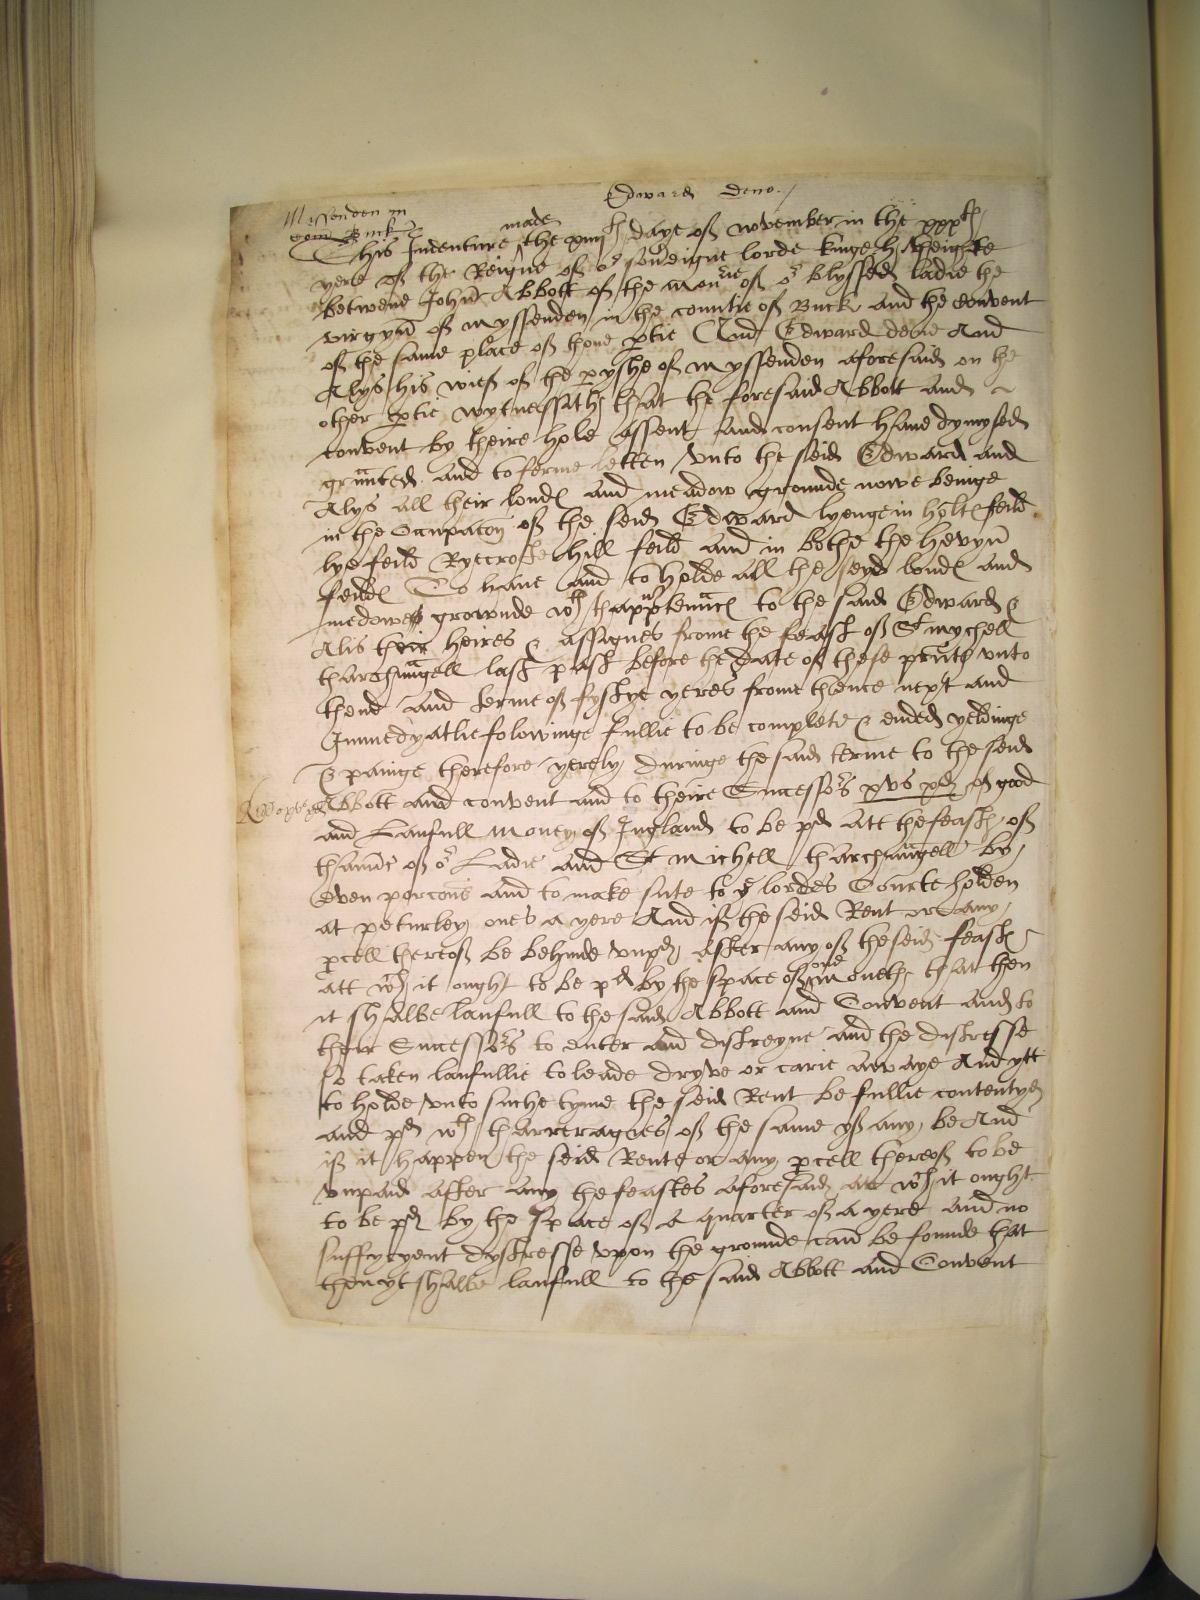 Edward Deno
Missenden in
com Buck
This Indenture made the xviijth daye off november in the xxxth
yere off the Reigne off or sov'eigne lorde kinge H theighte
betwene John Abbott off the Mon'rie off or blyssed ladie the
virgyn off myssenden in the countie off Buck and the convent
off the same place off thone ptie And Edward deno And
Alys his wieff off the pyshe off myssenden aforesaid on the
other ptie wytnessith that the foresaid Abbott and
convent by theire hole assent and consent have dymysed
graunted and to ferme letten unto the seid Edward and
Alys all their lond and meadow grounde nowe beinge
in the Occupacon off the seid Edward lyenge in holte feild
lye feild Ryecrofte hill feild and in bothe the hevyn
feild To have and to holde all the seyd lond and
medowe grownde wth thapptennc to the said Edward &
Alis their heires & assignes frome the feast off St mychell
tharchaungell last past before the date off these prnts unto
thend and terme off fyftye yeres frome thence next and
Immedyatlie folowinge fullie to be complete & ended yeldinge
& painge therefore yerely duringe the said terme to the seid
Abbott and convent and to theire Successors xvs pd off good
and Laufull money off Ingland to be pd Att the feasts off
thannc off or Ladie and St Michell tharchaungell by
even porcons and to make sute to ye lordes Courte holden
at peturley ones a yere And iff the seid Rent or any
pcell thereoff be behinde unpd after any off the seid feasts
att wch it ought to be pd by the space off one moneth that then
it shalbe laufull to the said Abbott and Convent and to
their Successors to enter and distreyne and the distresse
so taken laufullie to leade dryve or carie awaye And ytt
to holde unto suche tyme the seid Rent be fullie contentyd
and pd wth tharreragies off the same yff any be And
iff it happen the seid Rente or any pcell thereoff to be
unpaid after any the feastes aforesaid att wch it ought
to be pd by the space off a quarter off a yere and no
suffycyent dystresse upon the grounde can be founde that
then yt shalbe laufull to the said Abbott and Convent